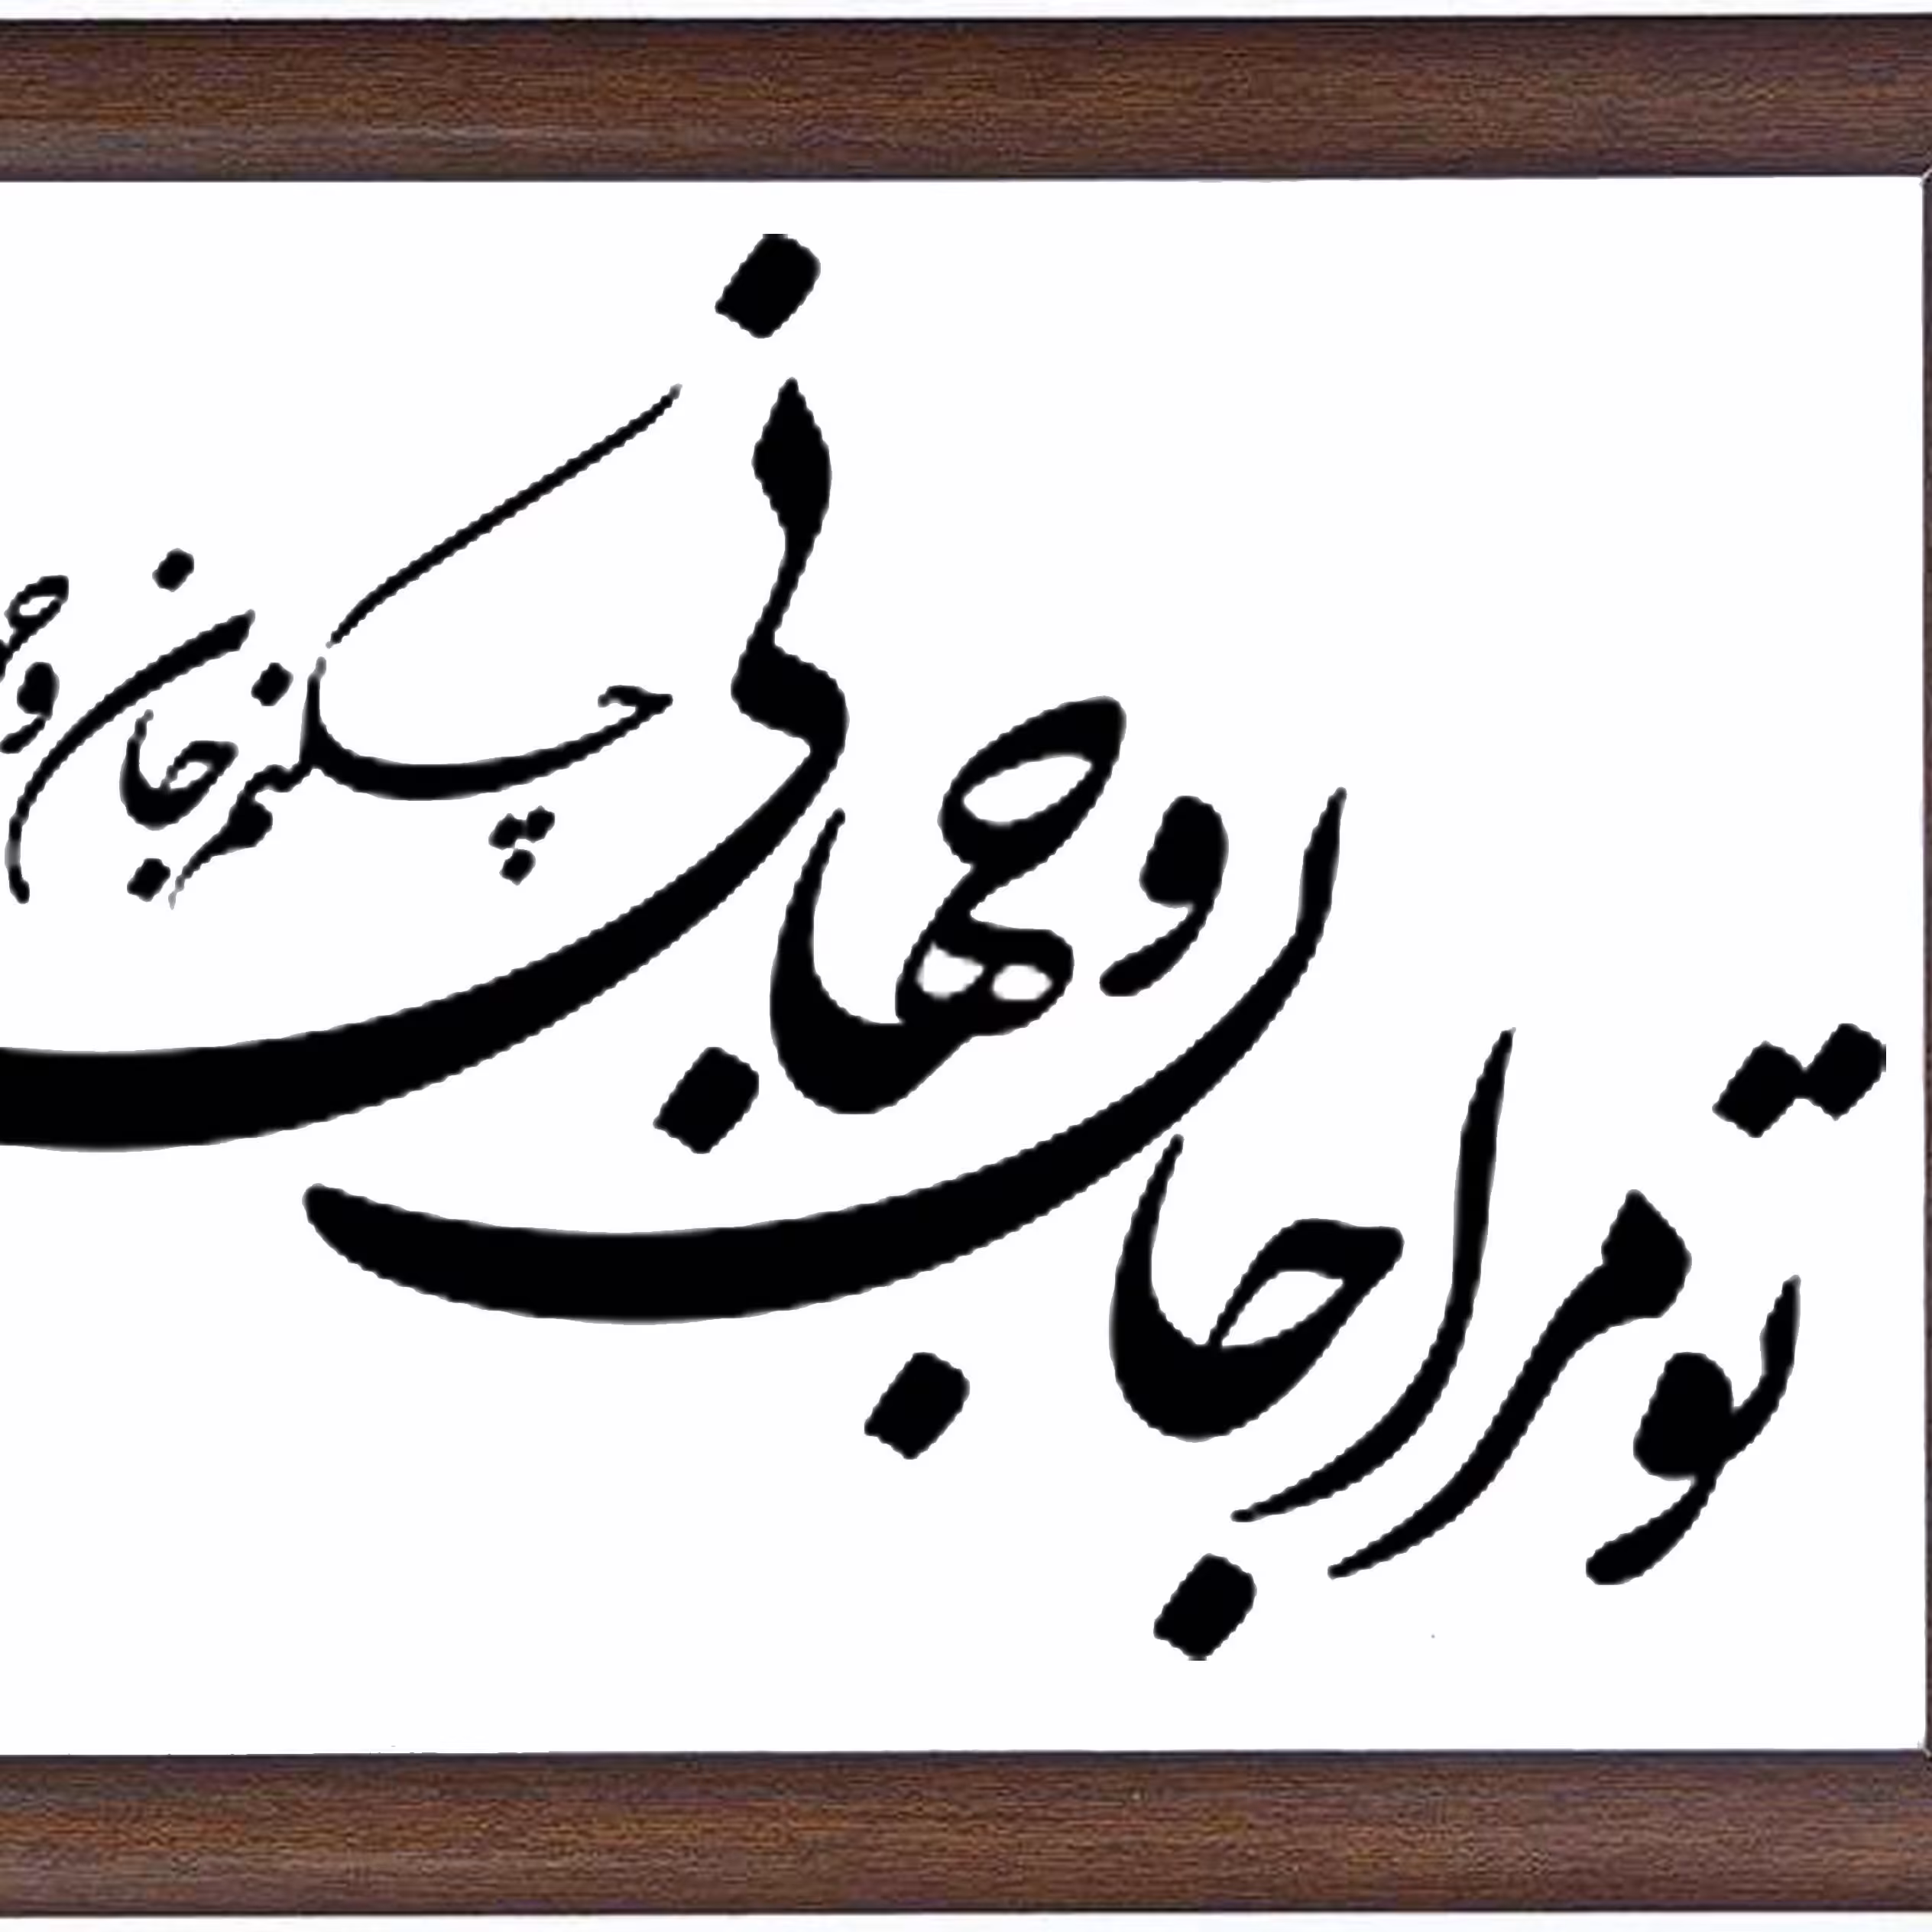 تو مرا جان و جهانی
چکنم جان و